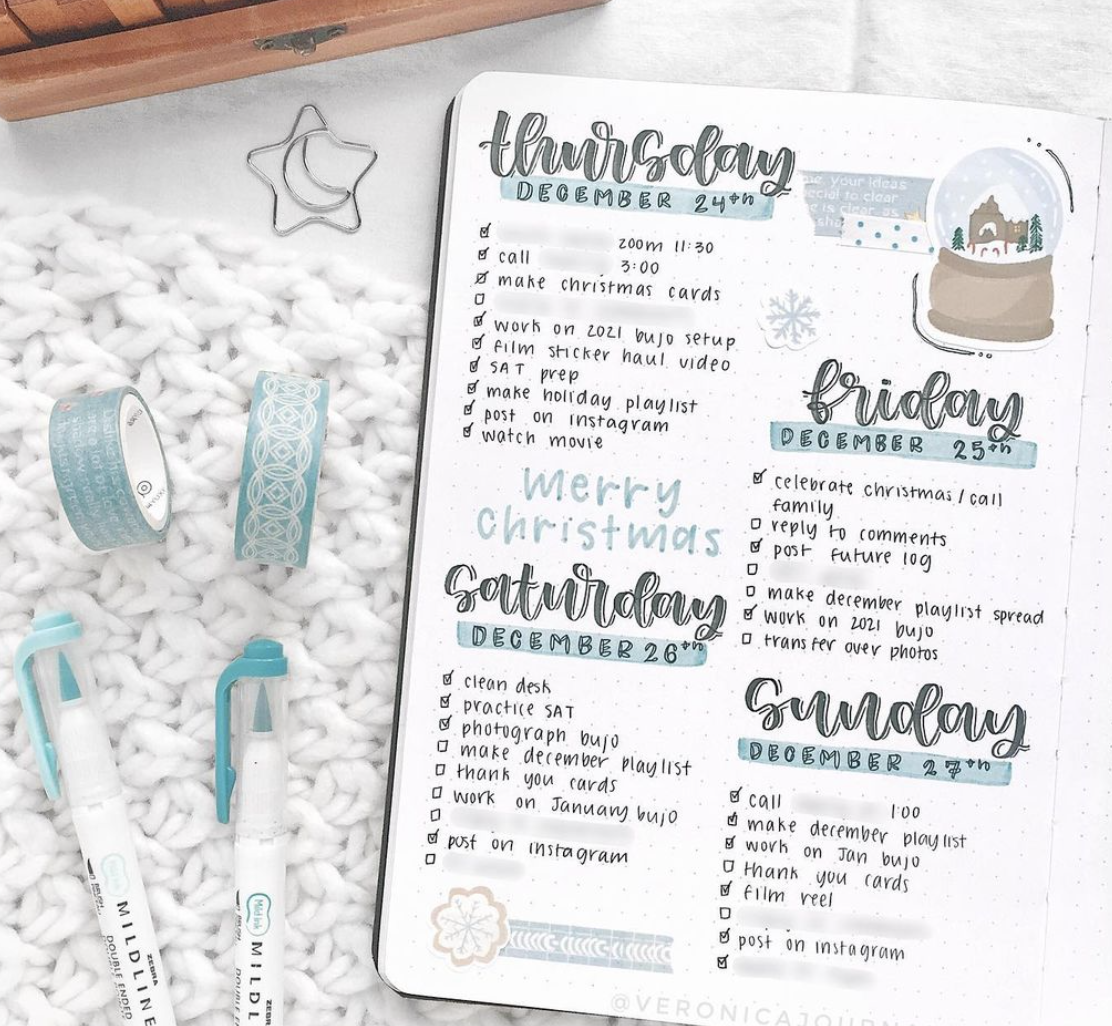 thursday
DECEMBER 24th
200m 11:30
call 3:00
make christmas cards
work on 2021 bujo setup
film sticker haul video
SAT prep
make holiday playlist
post on instagram
watch movie
your ideas
to clear
is clear as
merry
christmas
friday
DECEMBER 25th
celebrate christmas / call
family
reply to comments
post future log
make december playlist spread
work on 2021 bujo
transfer over photos
saturday
DECEMBER 26th
clean desk
practice SAT
photograph bujo
make december playlist
thank you cards
work on January bujo
post on instagram
sunday
DECEMBER 27th
call 1:00
make december playlist
work on Jan bujo
thank you cards
film reel
post on instagram
@VERONICAJOURN
Mildliner
ZEBRA
MILDLINE
DOUBLE ENDED
BRUSH
ZEB
MILDL